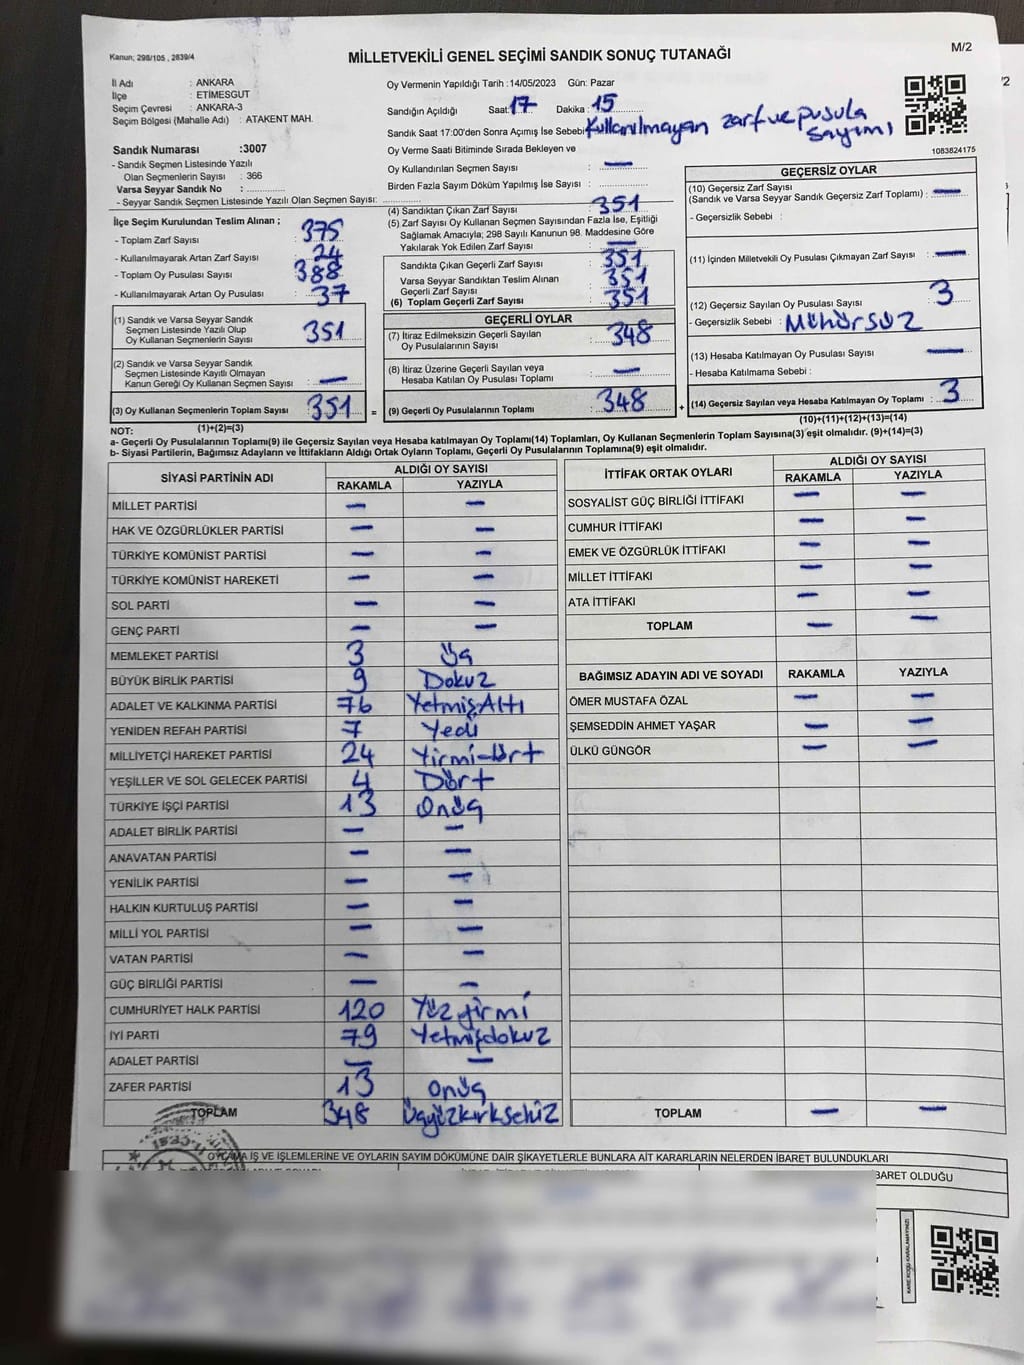 Kanun; 298/105 , 2839/4
MİLLETVEKİLİ GENEL SEÇİMİ SANDIK SONUÇ TUTANAĞI
M/2
İl Adı : ANKARA
İlçe : ETİMESGUT
Seçim Çevresi : ANKARA-3
Seçim Bölgesi (Mahalle Adı) : ATAKENT MAH.
Oy Vermenin Yapıldığı Tarih :14/05/2023 Gün: Pazar
Sandığın Açıldığı Saat:17 Dakika :15
Sandık Saat 17:00'den Sonra Açımış İse Sebebi Kullanılmayan zarf ve pusula sayımı
Oy Verme Saati Bitiminde Sırada Bekleyen ve
Oy Kullandırılan Seçmen Sayısı : —
Birden Fazla Sayım Döküm Yapılmış İse Sayısı :
1083824175
Sandık Numarası :3007
- Sandık Seçmen Listesinde Yazılı
Olan Seçmenlerin Sayısı : 366
Varsa Seyyar Sandık No :
- Seyyar Sandık Seçmen Listesinde Yazılı Olan Seçmen Sayısı:
İlçe Seçim Kurulundan Teslim Alınan ;
- Toplam Zarf Sayısı : 375
- Kullanılmayarak Artan Zarf Sayısı : 24
- Toplam Oy Pusulası Sayısı : 388
- Kullanılmayarak Artan Oy Pusulası : 37
(1) Sandık ve Varsa Seyyar Sandık
Seçmen Listesinde Yazılı Olup
Oy Kullanan Seçmenlerin Sayısı : 351
(2) Sandık ve Varsa Seyyar Sandık
Seçmen Listesinde Kayıtlı Olmayan
Kanun Gereği Oy Kullanan Seçmen Sayısı : —
(3) Oy Kullanan Seçmenlerin Toplam Sayısı : 351 =
(1)+(2)=(3)
(4) Sandıktan Çıkan Zarf Sayısı : 351
(5) Zarf Sayısı Oy Kullanan Seçmen Sayısından Fazla İse, Eşitliği
Sağlamak Amacıyla; 298 Sayılı Kanunun 98. Maddesine Göre
Yakılarak Yok Edilen Zarf Sayısı : —
Sandıkta Çıkan Geçerli Zarf Sayısı : 351
Varsa Seyyar Sandıktan Teslim Alınan
Geçerli Zarf Sayısı : 351
(6) Toplam Geçerli Zarf Sayısı : 351
GEÇERLİ OYLAR
(7) İtiraz Edilmeksizin Geçerli Sayılan
Oy Pusulalarının Sayısı : 348
(8) İtiraz Üzerine Geçerli Sayılan veya
Hesaba Katılan Oy Pusulası Toplamı : —
(9) Geçerli Oy Pusulalarının Toplamı : 348 +
GEÇERSİZ OYLAR
(10) Geçersiz Zarf Sayısı
(Sandık ve Varsa Seyyar Sandık Geçersiz Zarf Toplamı) : —
- Geçersizlik Sebebi :
(11) İçinden Milletvekili Oy Pusulası Çıkmayan Zarf Sayısı : —
(12) Geçersiz Sayılan Oy Pusulası Sayısı : 3
- Geçersizlik Sebebi : Mühürsüz
(13) Hesaba Katılmayan Oy Pusulası Sayısı : —
- Hesaba Katılmama Sebebi :
(14) Geçersiz Sayılan veya Hesaba Katılmayan Oy Toplamı : 3
(10)+(11)+(12)+(13)=(14)
NOT:
a- Geçerli Oy Pusulalarının Toplamı(9) ile Geçersiz Sayılan veya Hesaba katılmayan Oy Toplamı(14) Toplamları, Oy Kullanan Seçmenlerin Toplam Sayısına(3) eşit olmalıdır. (9)+(14)=(3)
b- Siyasi Partilerin, Bağımsız Adayların ve İttifakların Aldığı Oyların Toplamı, Geçerli Oy Pusulalarının Toplamına(9) eşit olmalıdır.
SİYASİ PARTİNİN ADI ALDIĞI OY SAYISI
RAKAMLA YAZIYLA
MİLLET PARTİSİ — —
HAK VE ÖZGÜRLÜKLER PARTİSİ — —
TÜRKİYE KOMÜNİST PARTİSİ — —
TÜRKİYE KOMÜNİST HAREKETİ — —
SOL PARTİ — —
GENÇ PARTİ — —
MEMLEKET PARTİSİ 3 Üç
BÜYÜK BİRLİK PARTİSİ 9 Dokuz
ADALET VE KALKINMA PARTİSİ 76 YetmişAltı
YENİDEN REFAH PARTİSİ 7 Yedi
MİLLİYETÇİ HAREKET PARTİSİ 24 Yirmi-Dört
YEŞİLLER VE SOL GELECEK PARTİSİ 4 Dört
TÜRKİYE İŞÇİ PARTİSİ 13 Onüç
ADALET BİRLİK PARTİSİ — —
ANAVATAN PARTİSİ — —
YENİLİK PARTİSİ — —
HALKIN KURTULUŞ PARTİSİ — —
MİLLİ YOL PARTİSİ — —
VATAN PARTİSİ — —
GÜÇ BİRLİĞİ PARTİSİ — —
CUMHURİYET HALK PARTİSİ 120 Yüzyirmi
İYİ PARTİ 79 Yetmişdokuz
ADALET PARTİSİ — —
ZAFER PARTİSİ 13 Onüç
TOPLAM 348 Üçyüzkırksekiz
İTTİFAK ORTAK OYLARI ALDIĞI OY SAYISI
RAKAMLA YAZIYLA
SOSYALİST GÜÇ BİRLİĞİ İTTİFAKI — —
CUMHUR İTTİFAKI — —
EMEK VE ÖZGÜRLÜK İTTİFAKI — —
MİLLET İTTİFAKI — —
ATA İTTİFAKI — —
TOPLAM — —
BAĞIMSIZ ADAYIN ADI VE SOYADI RAKAMLA YAZIYLA
ÖMER MUSTAFA ÖZAL — —
ŞEMSEDDİN AHMET YAŞAR — —
ÜLKÜ GÜNGÖR — —
TOPLAM — —
OYLAMA İŞ VE İŞLEMLERİNE VE OYLARIN SAYIM DÖKÜMÜNE DAİR ŞİKAYETLERLE BUNLARA AİT KARARLARIN NELERDEN İBARET BULUNDUKLARI
BARET OLDUĞU